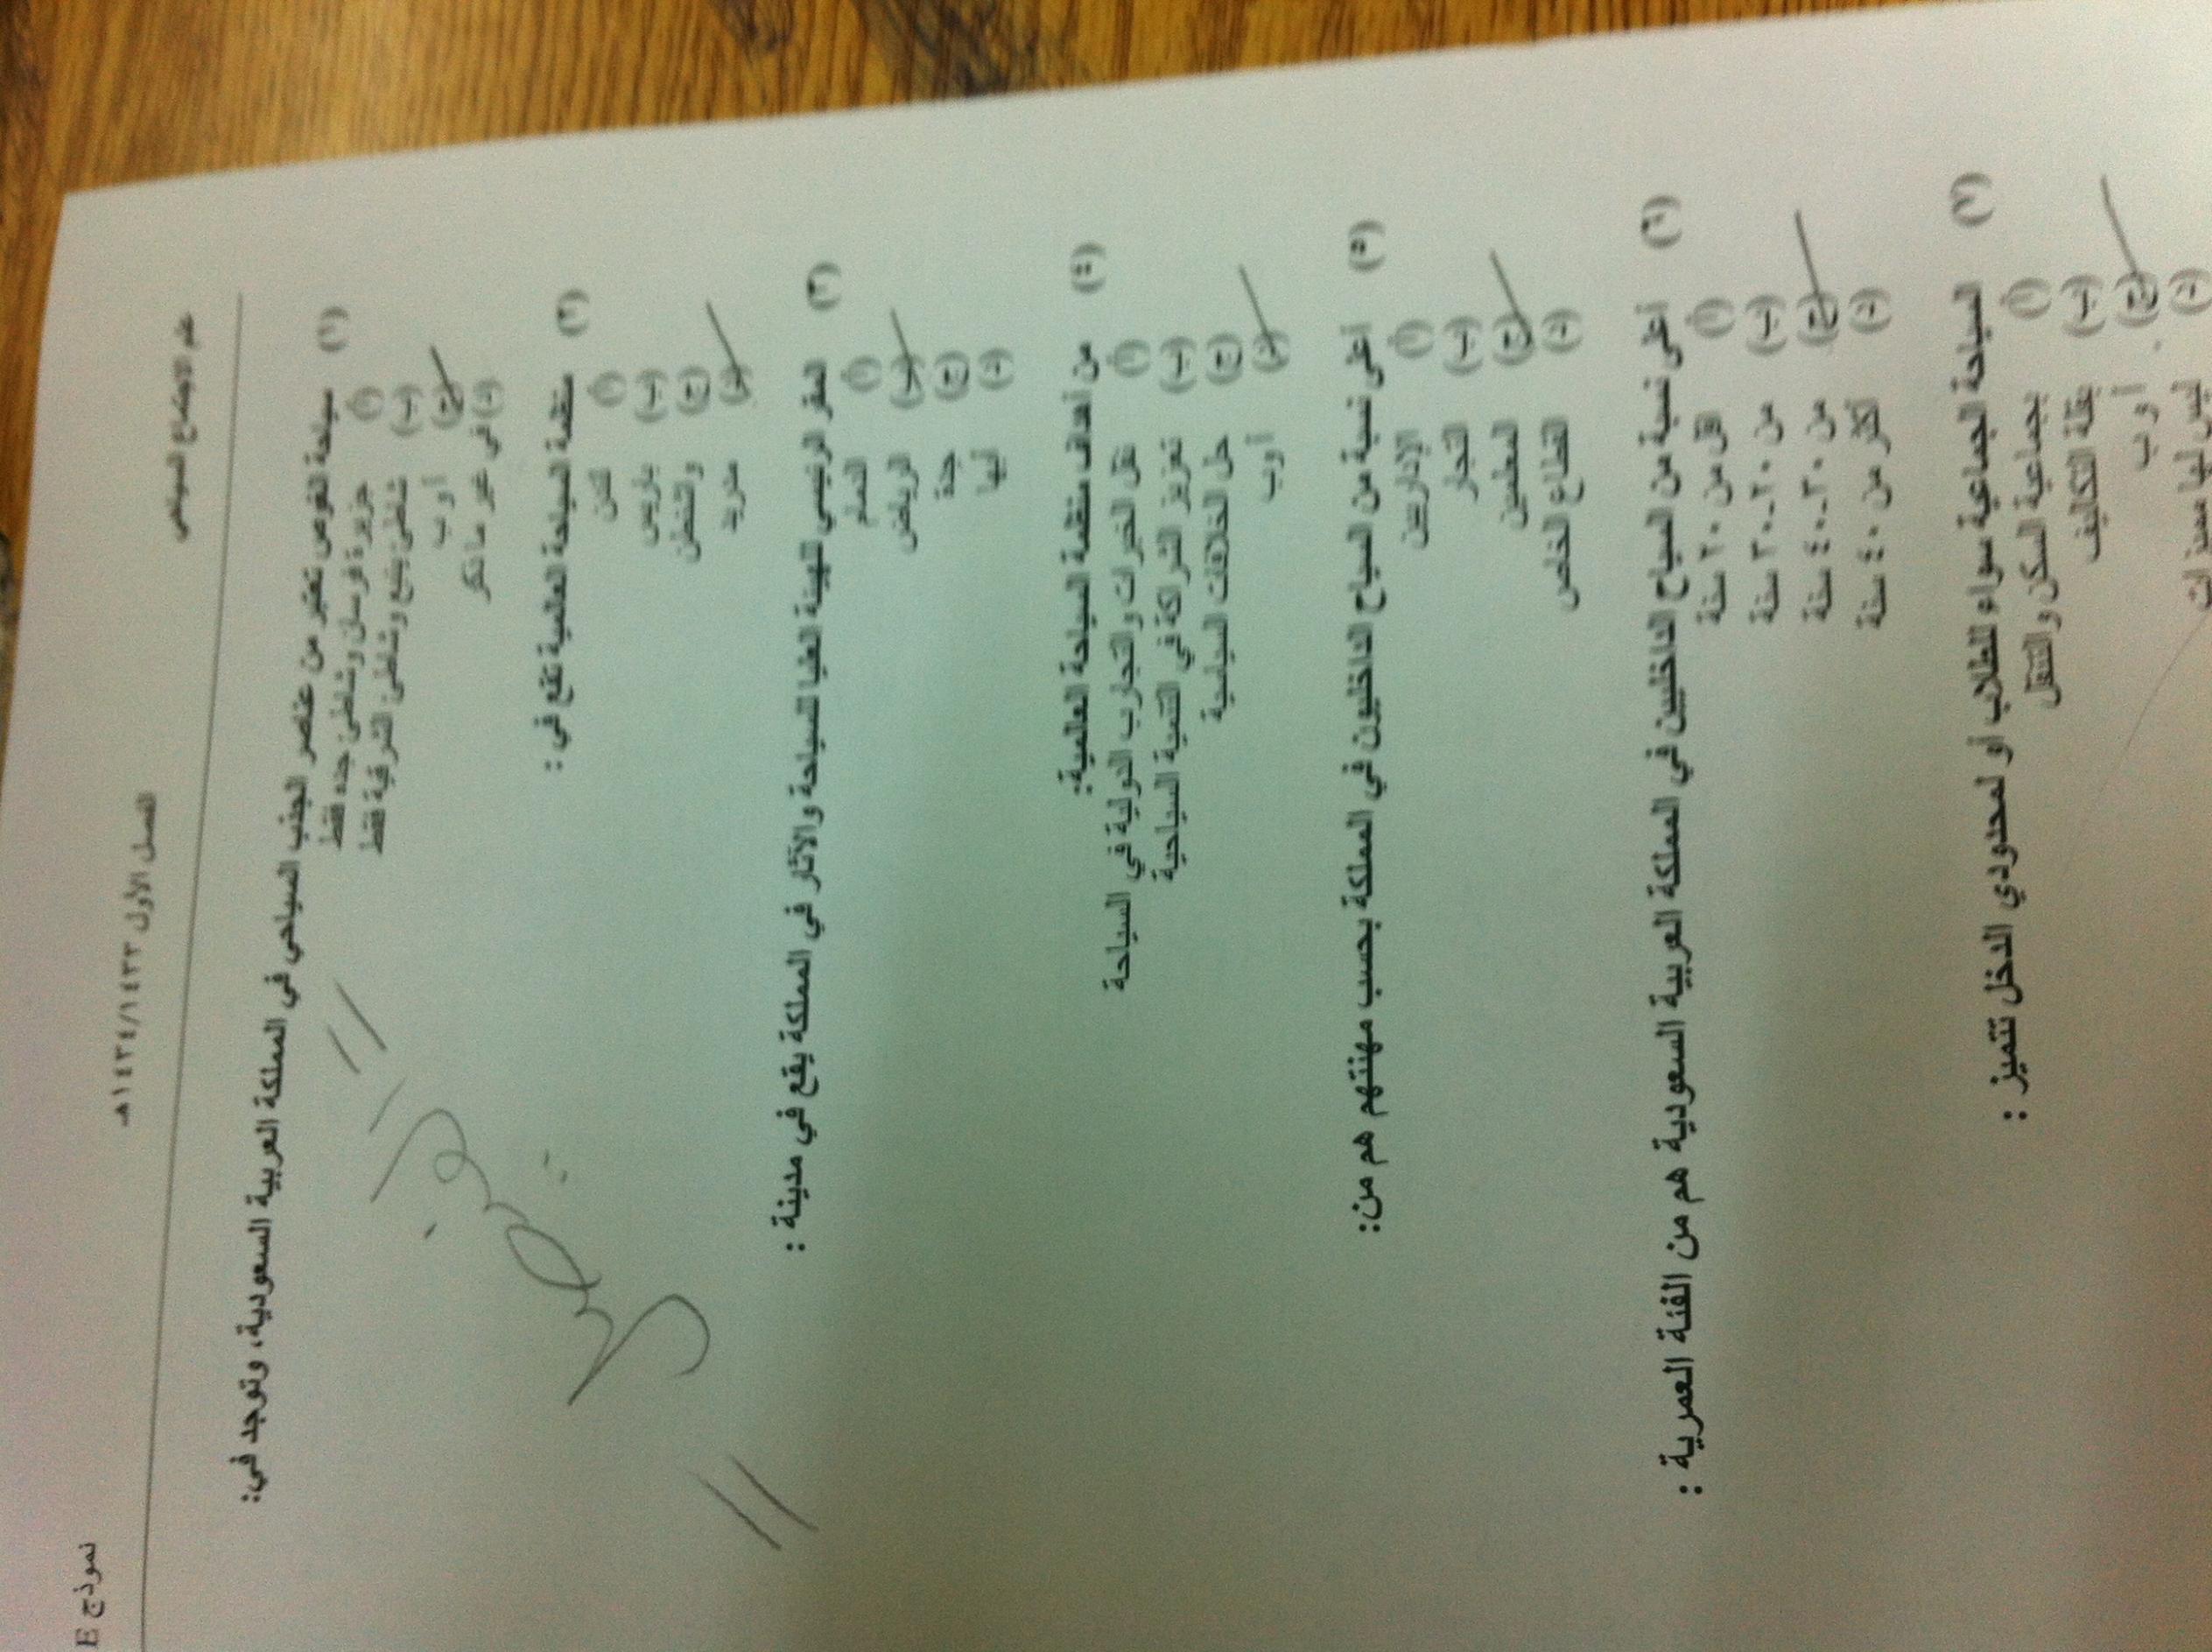 علم الاجتماع السياحي
الفصل الأول ١٤٣٤/١٤٣٣هـ
نموذج E
(١) سياحة الغوص تعتبر من عناصر الجذب السياحي في المملكة العربية السعودية، وتوجد في:
(أ) جزيرة فرسان وشاطئ جده فقط
(ب) شاطئ ينبع وشاطئ الشرقية فقط
(ج) أ و ب
(د) في غير ما ذكر
(٢) منظمة السياحة العالمية تقع في :
(أ) لندن
(ب) باريس
(ج) واشنطن
(د) مدريد
(٣) المقر الرئيسي للهيئة العليا للسياحة والآثار في المملكة يقع في مدينة :
(أ) الدمام
(ب) الرياض
(ج) جدة
(د) أبها
(٤) من أهداف منظمة السياحة العالمية:
(أ) نقل الخبرات والتجارب الدولية في السياحة
(ب) تعزيز الشراكة في التنمية السياحية
(ج) حل الخلافات السياسية
(د) أ و ب
(٥) أعلى نسبة من السياح الداخليون في المملكة بحسب مهنتهم هم من:
(أ) الإداريين
(ب) التجار
(ج) المعلمين
(د) القطاع الخاص
(٦) أعلى نسبة من السياح الداخليين في المملكة العربية السعودية هم من الفئة العمرية :
(أ) أقل من ٢٠ سنة
(ب) من ٢٠-٣٠ سنة
(ج) من ٣٠-٤٠ سنة
(د) أكثر من ٤٠ سنة
السياحة الجماعية سواء للطلاب أو لمحدودي الدخل تتميز :
(أ) بجماعية السكن والتنقل
(ب) بقلة التكاليف
(ج) أ و ب
(د) ليس لها مميزات